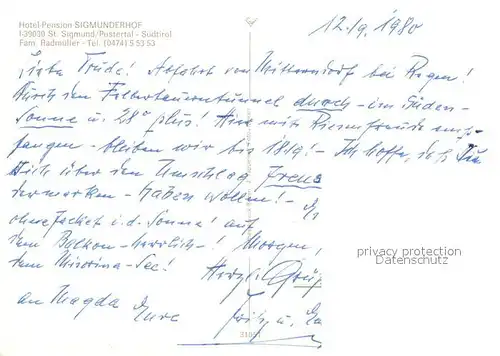 Hotel-Pension SIGMUNDERHOF
I-39030 St. Sigmund/Pustertal - Südtirol
Fam. Radmüller - Tel. (0474) 5 53 53
12./9. 1980
Liebe Trude! Abfahrt von Mitterndorf bei Regen!
Durch den Felbertauerntunnel durch - im Süden -
Sonne u. 28° plus! Hier mit Riesenfreude emp-
fangen - bleiben wir bis 18./9! - Ich hoffe, daß Du
Dich über den Umschlag Freu
dermarken - haben wollen! -
ohne Jacket i. d. Sonne! auf
dem Balkon - herrlich! Morgen,
dem Misurina-See! Herzl. Grüß
an Magda Eure Fritz u.
privacy protection
Datenschutz